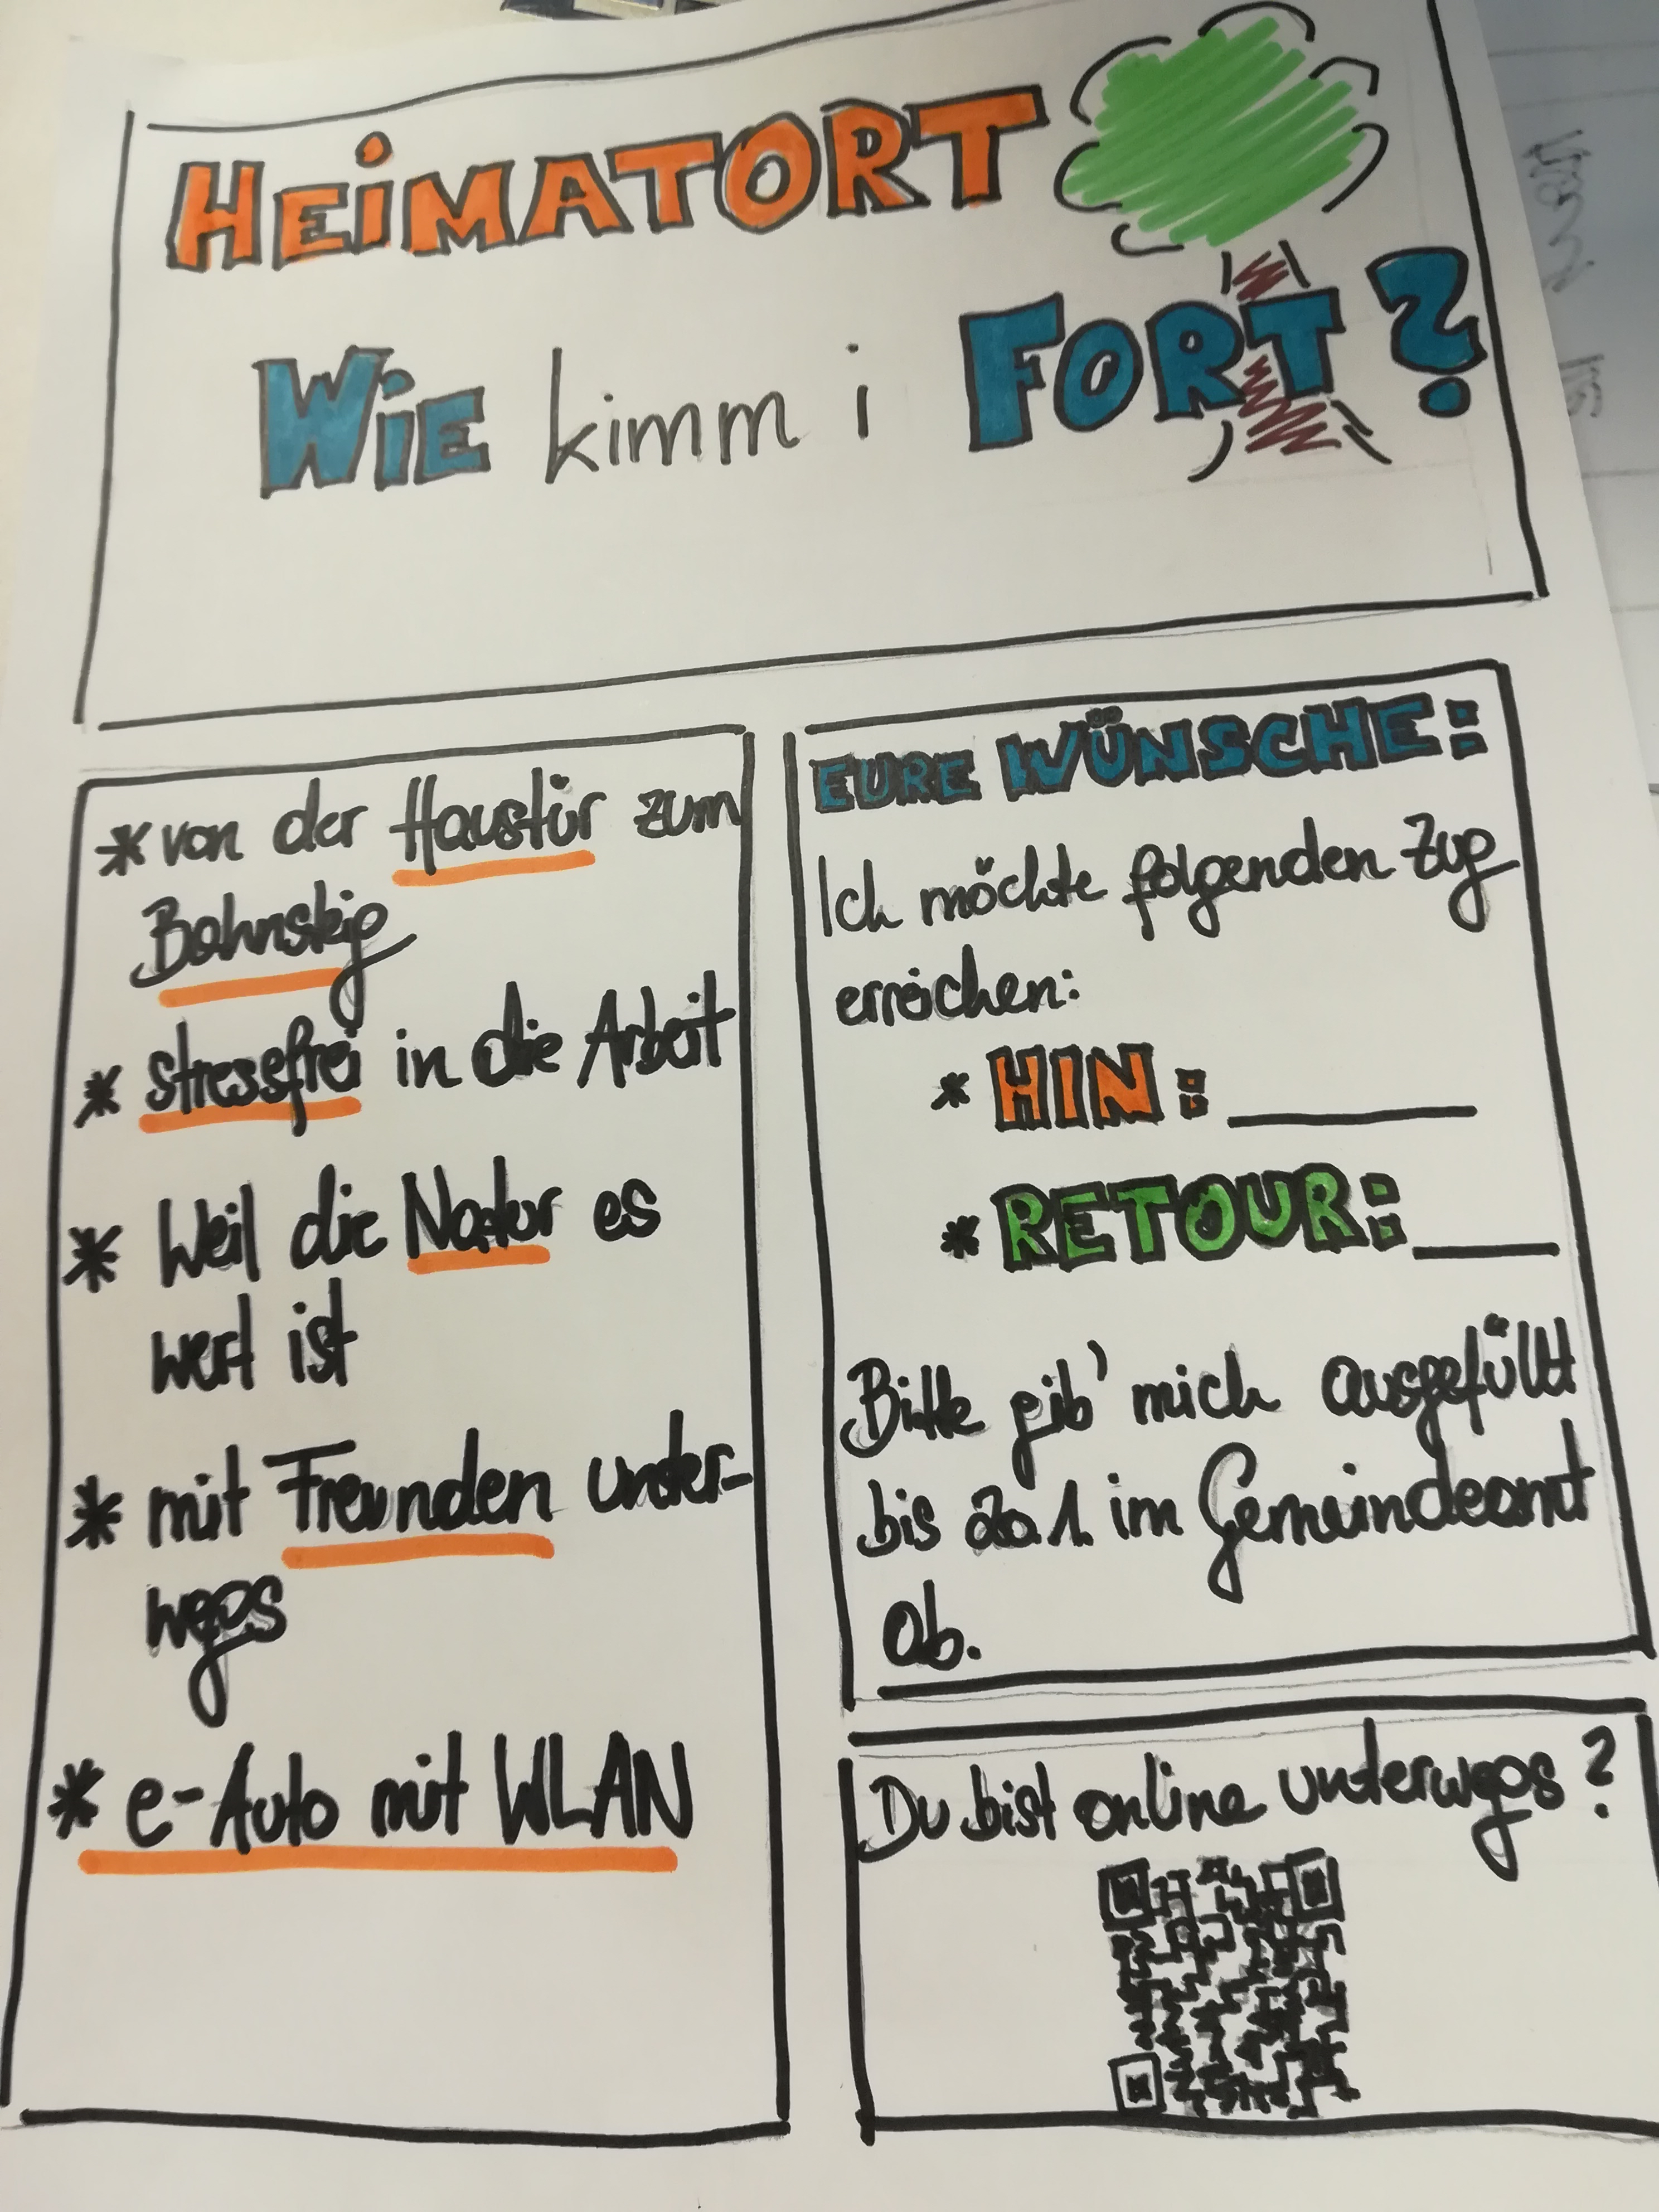 HEiMATORT
WiE kimm i FORT?
* von der Haustür zum
Bahnsteig
* stressfrei in die Arbeit
* Weil die Natur es
wert ist
* mit Freunden unter-
wegs
* e-Auto mit WLAN
EURE WÜNSCHE:
Ich möchte folgenden Zug
erreichen:
* HIN: ______
* RETOUR: ____
Bitte gib' mich ausgefüllt
bis 20.1. im Gemeindeamt
ab.
Du bist online unterwegs?